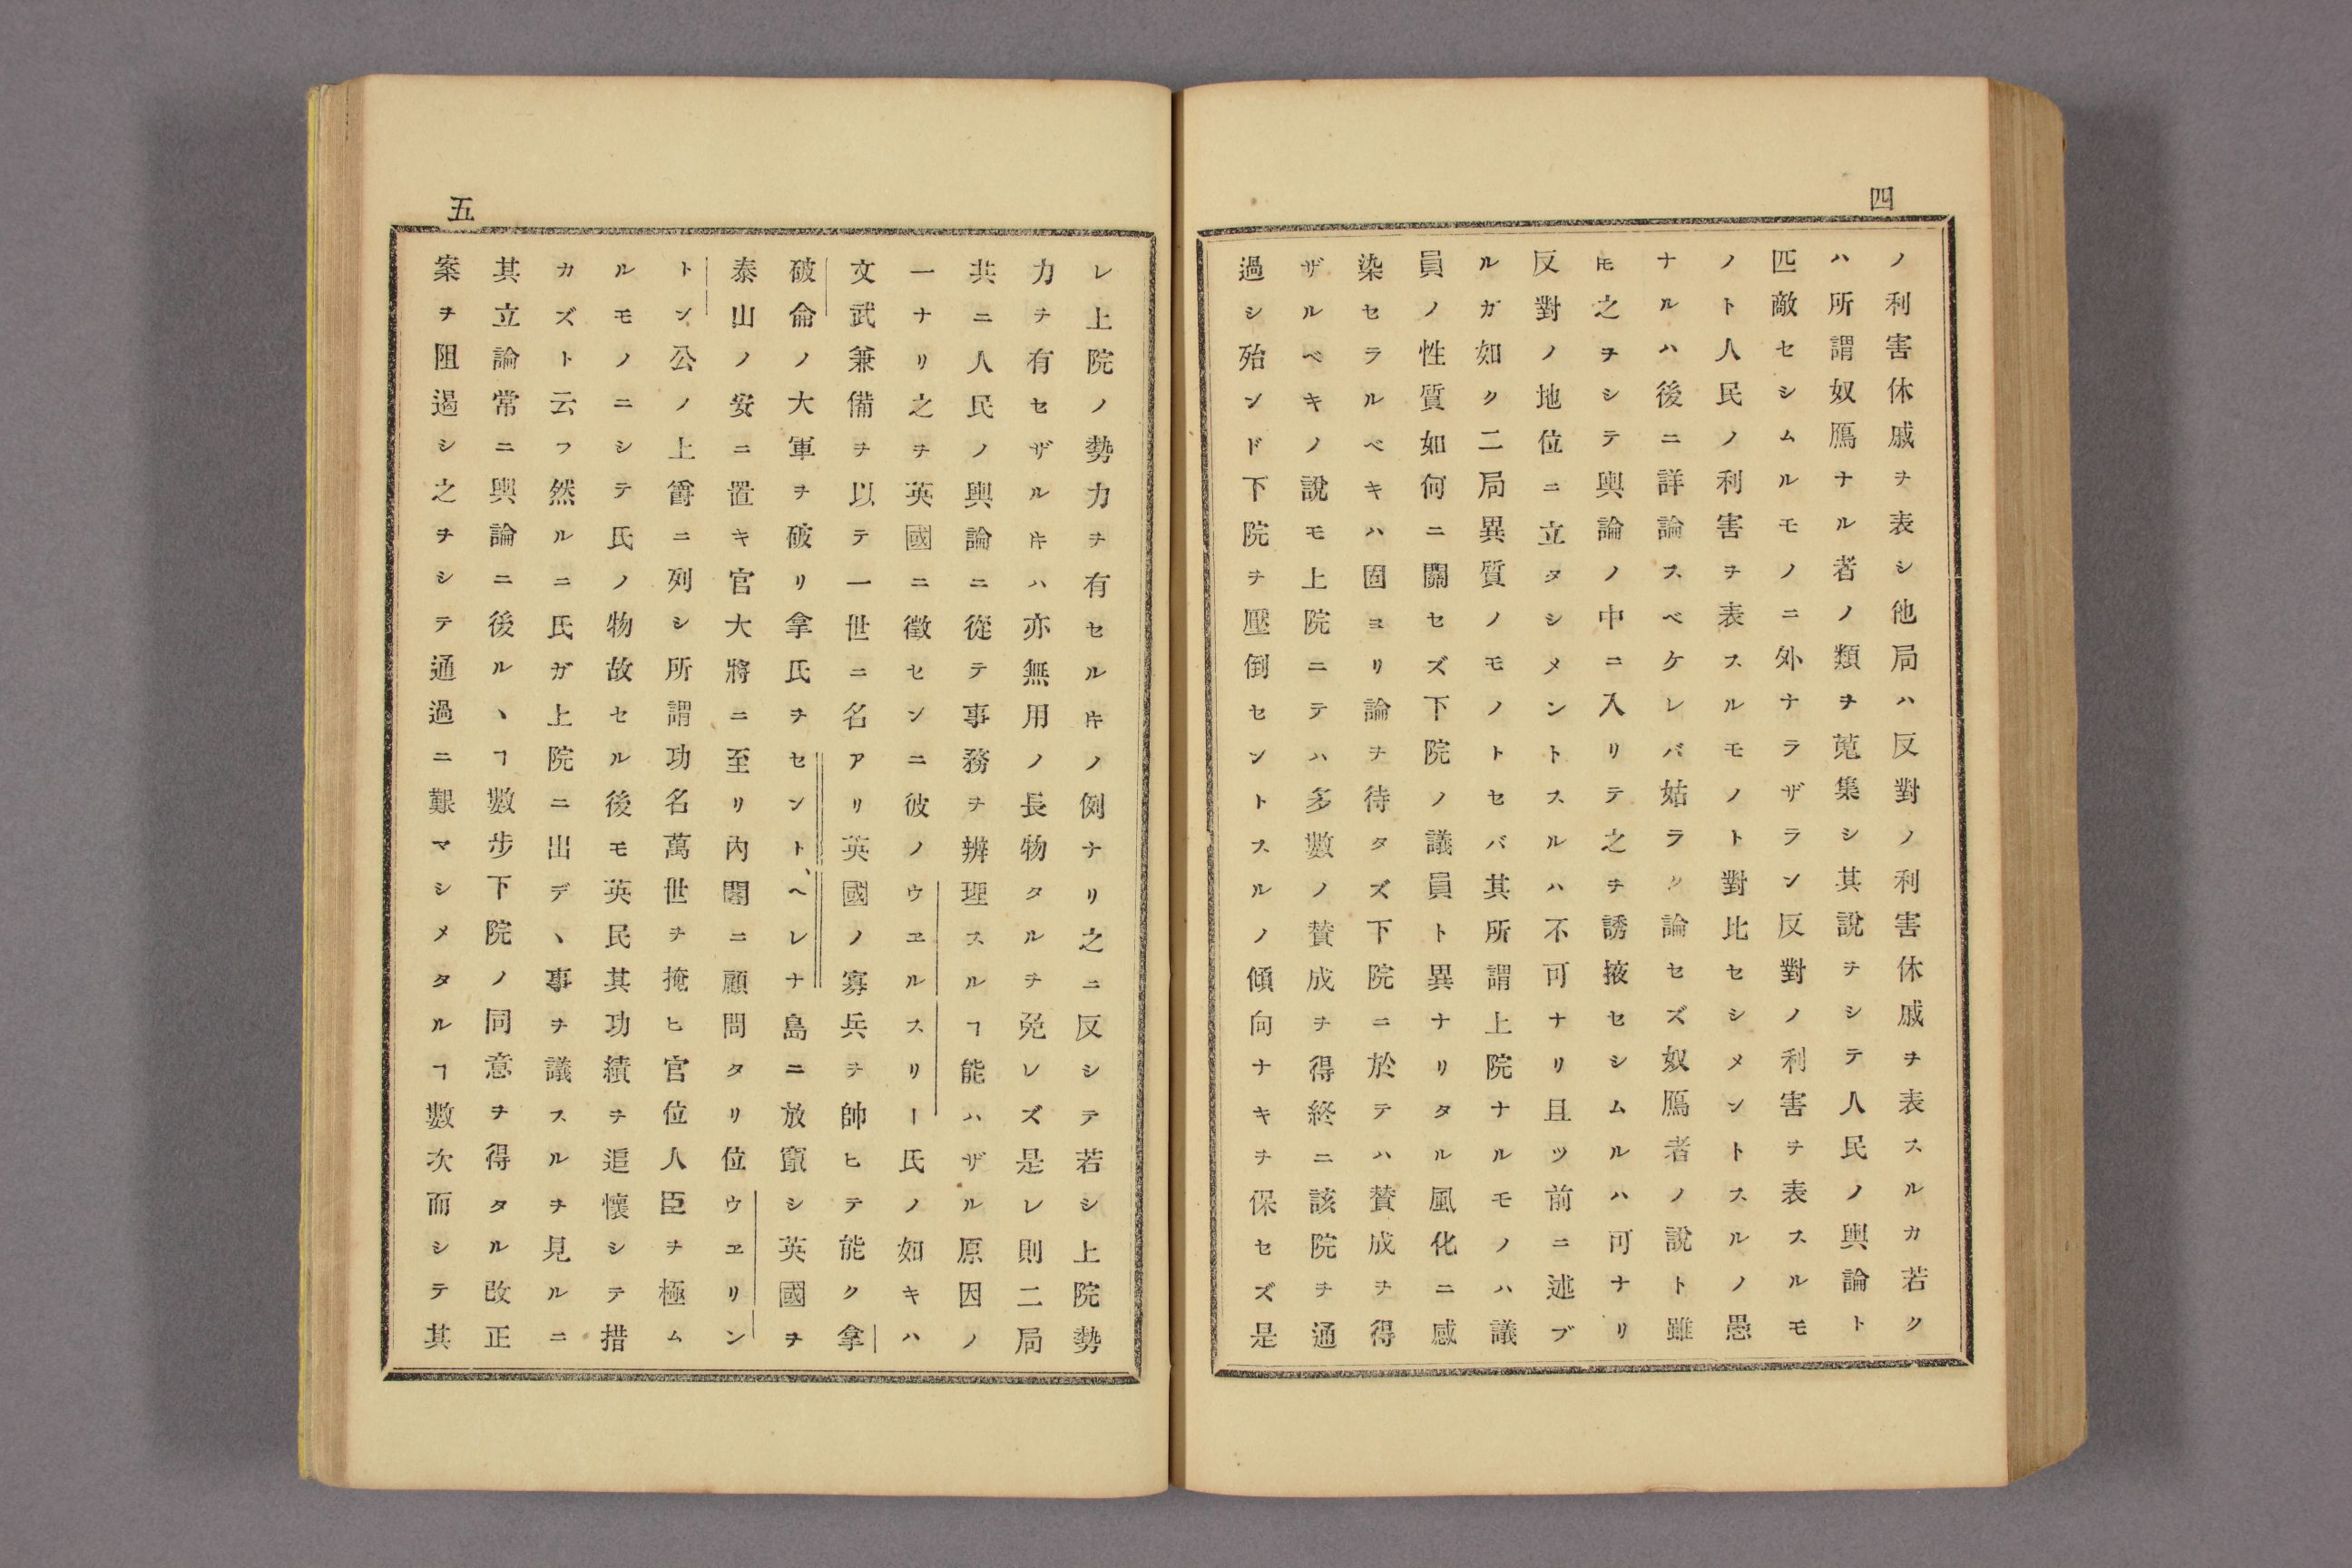 四
ノ利害休戚ヲ表シ他局ハ反對ノ利害休戚ヲ表スルカ若ク
ハ所謂奴鴈ナル者ノ類ヲ蒐集シ其說ヲシテ人民ノ輿論ト
匹敵セシムルモノニ外ナラザラン反對ノ利害ヲ表スルモ
ノト人民ノ利害ヲ表スルモノト對比セシメントスルノ愚
ナルハ後ニ詳論スベケレバ姑ラク論セズ奴鴈者ノ說ト雖
𪜈之ヲシテ輿論ノ中ニ入リテ之ヲ誘掖セシムルハ可ナリ
反對ノ地位ニ立タシメントスルハ不可ナリ且ツ前ニ述ブ
ルガ如ク二局異質ノモノトセバ其所謂上院ナルモノハ議
員ノ性質如何ニ關セズ下院ノ議員ト異ナリタル風化ニ感
染セラルベキハ固ヨリ論ヲ待タズ下院ニ於テハ賛成ヲ得
ザルベキノ說モ上院ニテハ多數ノ賛成ヲ得終ニ該院ヲ通
過シ殆ンド下院ヲ壓倒セントスルノ傾向ナキヲ保セズ是
五
レ上院ノ勢力ヲ有セル㐧ノ例ナリ之ニ反シテ若シ上院勢
力ヲ有セザル㐧ハ亦無用ノ長物タルヲ免レズ是レ則二局
共ニ人民ノ輿論ニ從テ事務ヲ辨理スルヿ能ハザル原因ノ
一ナリ之ヲ英國ニ徵センニ彼ノウヱルスリー氏ノ如キハ
文武兼備ヲ以テ一世ニ名アリ英國ノ寡兵ヲ帥ヒテ能ク拿
破侖ノ大軍ヲ破リ拿氏ヲセント、ヘレナ島ニ放竄シ英國ヲ
泰山ノ安ニ置キ官大將ニ至リ內閣ニ顧問タリ位ウヱリン
トン公ノ上爵ニ列シ所謂功名萬世ヲ掩ヒ官位人臣ヲ極ム
ルモノニシテ氏ノ物故セル後モ英民其功績ヲ追懷シテ措
カズト云フ然ルニ氏ガ上院ニ出デ、事ヲ議スルヲ見ルニ
其立論常ニ輿論ニ後ル、ヿ數步下院ノ同意ヲ得タル改正
案ヲ阻遏シ之ヲシテ通過ニ艱マシメタルヿ數次而シテ其